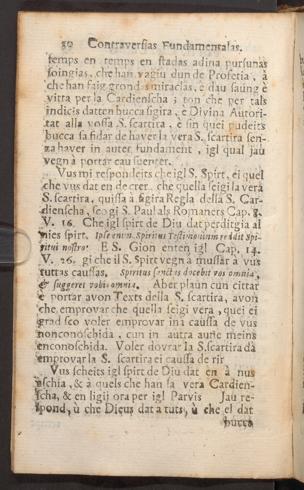 80 Contraversias Fundamentalas.
semps en temps en stadas adina pursunas
soingias, che han vagiu dun de Profetia, à
che han faig grondas miraclas, é dau saung è
vitta per la Cardienscha; ton che per tals
indicis datten bucca sigira, è Divina Autori-
tat alla vossa S. scartira, é sin quei pudeits
bucca sa fidar de haver la vera S. scartira sen-
za haver in auter fundament, igl qual jau
vegn à portar cau suenter.
Vus mi respondeits che igl S. Spirt, ei quel
che vus dat en decret che quella seigi la verà
S. scartira, quissa à sigira Regla della S. Car-
dienscha, seo gi S. Paul als Romaners Cap. 8.
V. 16. Che igl spirt de Diu dat perdirgia al
nies spirt. Ipse enim Spiritus Testimonium reddit Spi-
ritui nostro. E S. Gion enten igl Cap. 14.
V. 26. gi che il S. Spirt vegn à mussar à vus
tuttas caussas, Spiritus sanctus docebit vos omnia,
& suggeret vobis omnia, Aber plaun cun cittar
è portar avon Texts della S. scartira, avon
che emprovar che quella seigi vera, quei ei
grad sco voler emprovar inà caussa de vus
nonconoschida, cun in autra autte meins
enconoschida. Voler dovrar la S. scartira dà
emprovar la S. scartira ei caussa de rir
Vus scheits igl spirt de Diu dat en à nus
uschia, & à quels che han sa vera Cardien-
scha, & en ligij ora per igl Parvis Jau re-
spond, ù che Dieus dat a tuts, ù che el dat
bucca